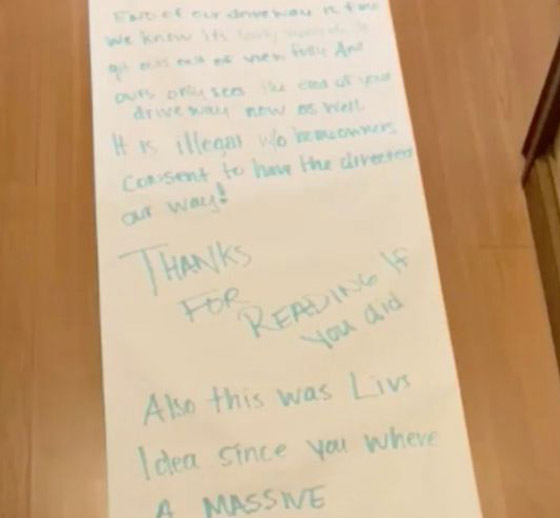 End of our driveway is fine
We know its
get ours out of view fully And
ours only sees the end of your
driveway now as well
It is illegal w/o homeowners
Consent to have the directed
our way!
THANKS
FOR READING If
you did
Also this was Livs
Idea since you where
A MASSIVE